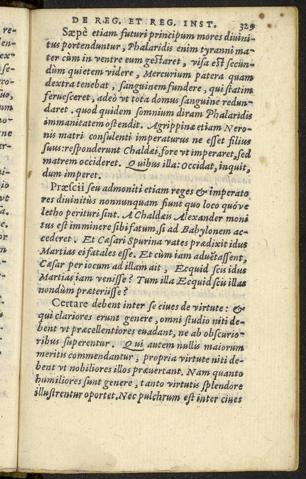 DE REG. ET REG. INST. 329
Sæpè etiam futuri principum mores diuini-
tus portenduntur, Phalaridis enim tyranni ma-
ter cùm in ventre eum gestaret, visa est secun-
dùm quietem videre, Mercurium patera quam
dextra tenebat, sanguinem fundere, qui statim
feruesceret, adeò vt tota domus sanguine redun-
daret. quod quidem somnium diram Phalaridis
immanitatem ostendit. Agrippinæ etiam Nero-
nis matri consulenti imperaturus ne esset filius
suus: responderunt Chaldei, fore vt imperaret, sed
matrem occideret. Quibus illa: Occidat, inquit,
dum imperet.
Præscii seu admoniti etiam reges & imperato
res diuinitùs nonnunquam fiunt quo loco quóve
letho perituri sint. A Chaldæis Alexander moni
tus est imminere sibi fatum, si ad Babylonem ac-
cederet. Et Cæsari Spurina vates prædixit idus
Martias ei fatales esse. Et cùm iam aduētassent,
Cæsar per iocum ad illam ait, Ecquid scis idus
Martias iam venisse? Tum illa Ecquid scis illas
nondùm præteriisse?
Certare debent inter se ciues de virtute: &
qui clariores erunt genere, omni studio niti de-
bent vt præcellentiores euadant, ne ab obscurio-
ribus superentur. Qui autem nullis maiorum
meritis commendantur, propria virtute niti de-
bent vt nobiliores illos præuertant. Nam quanto
humiliores sunt genere, tanto virtutis splendore
illustrentur oportet. Nec pulchrum est inter ciues